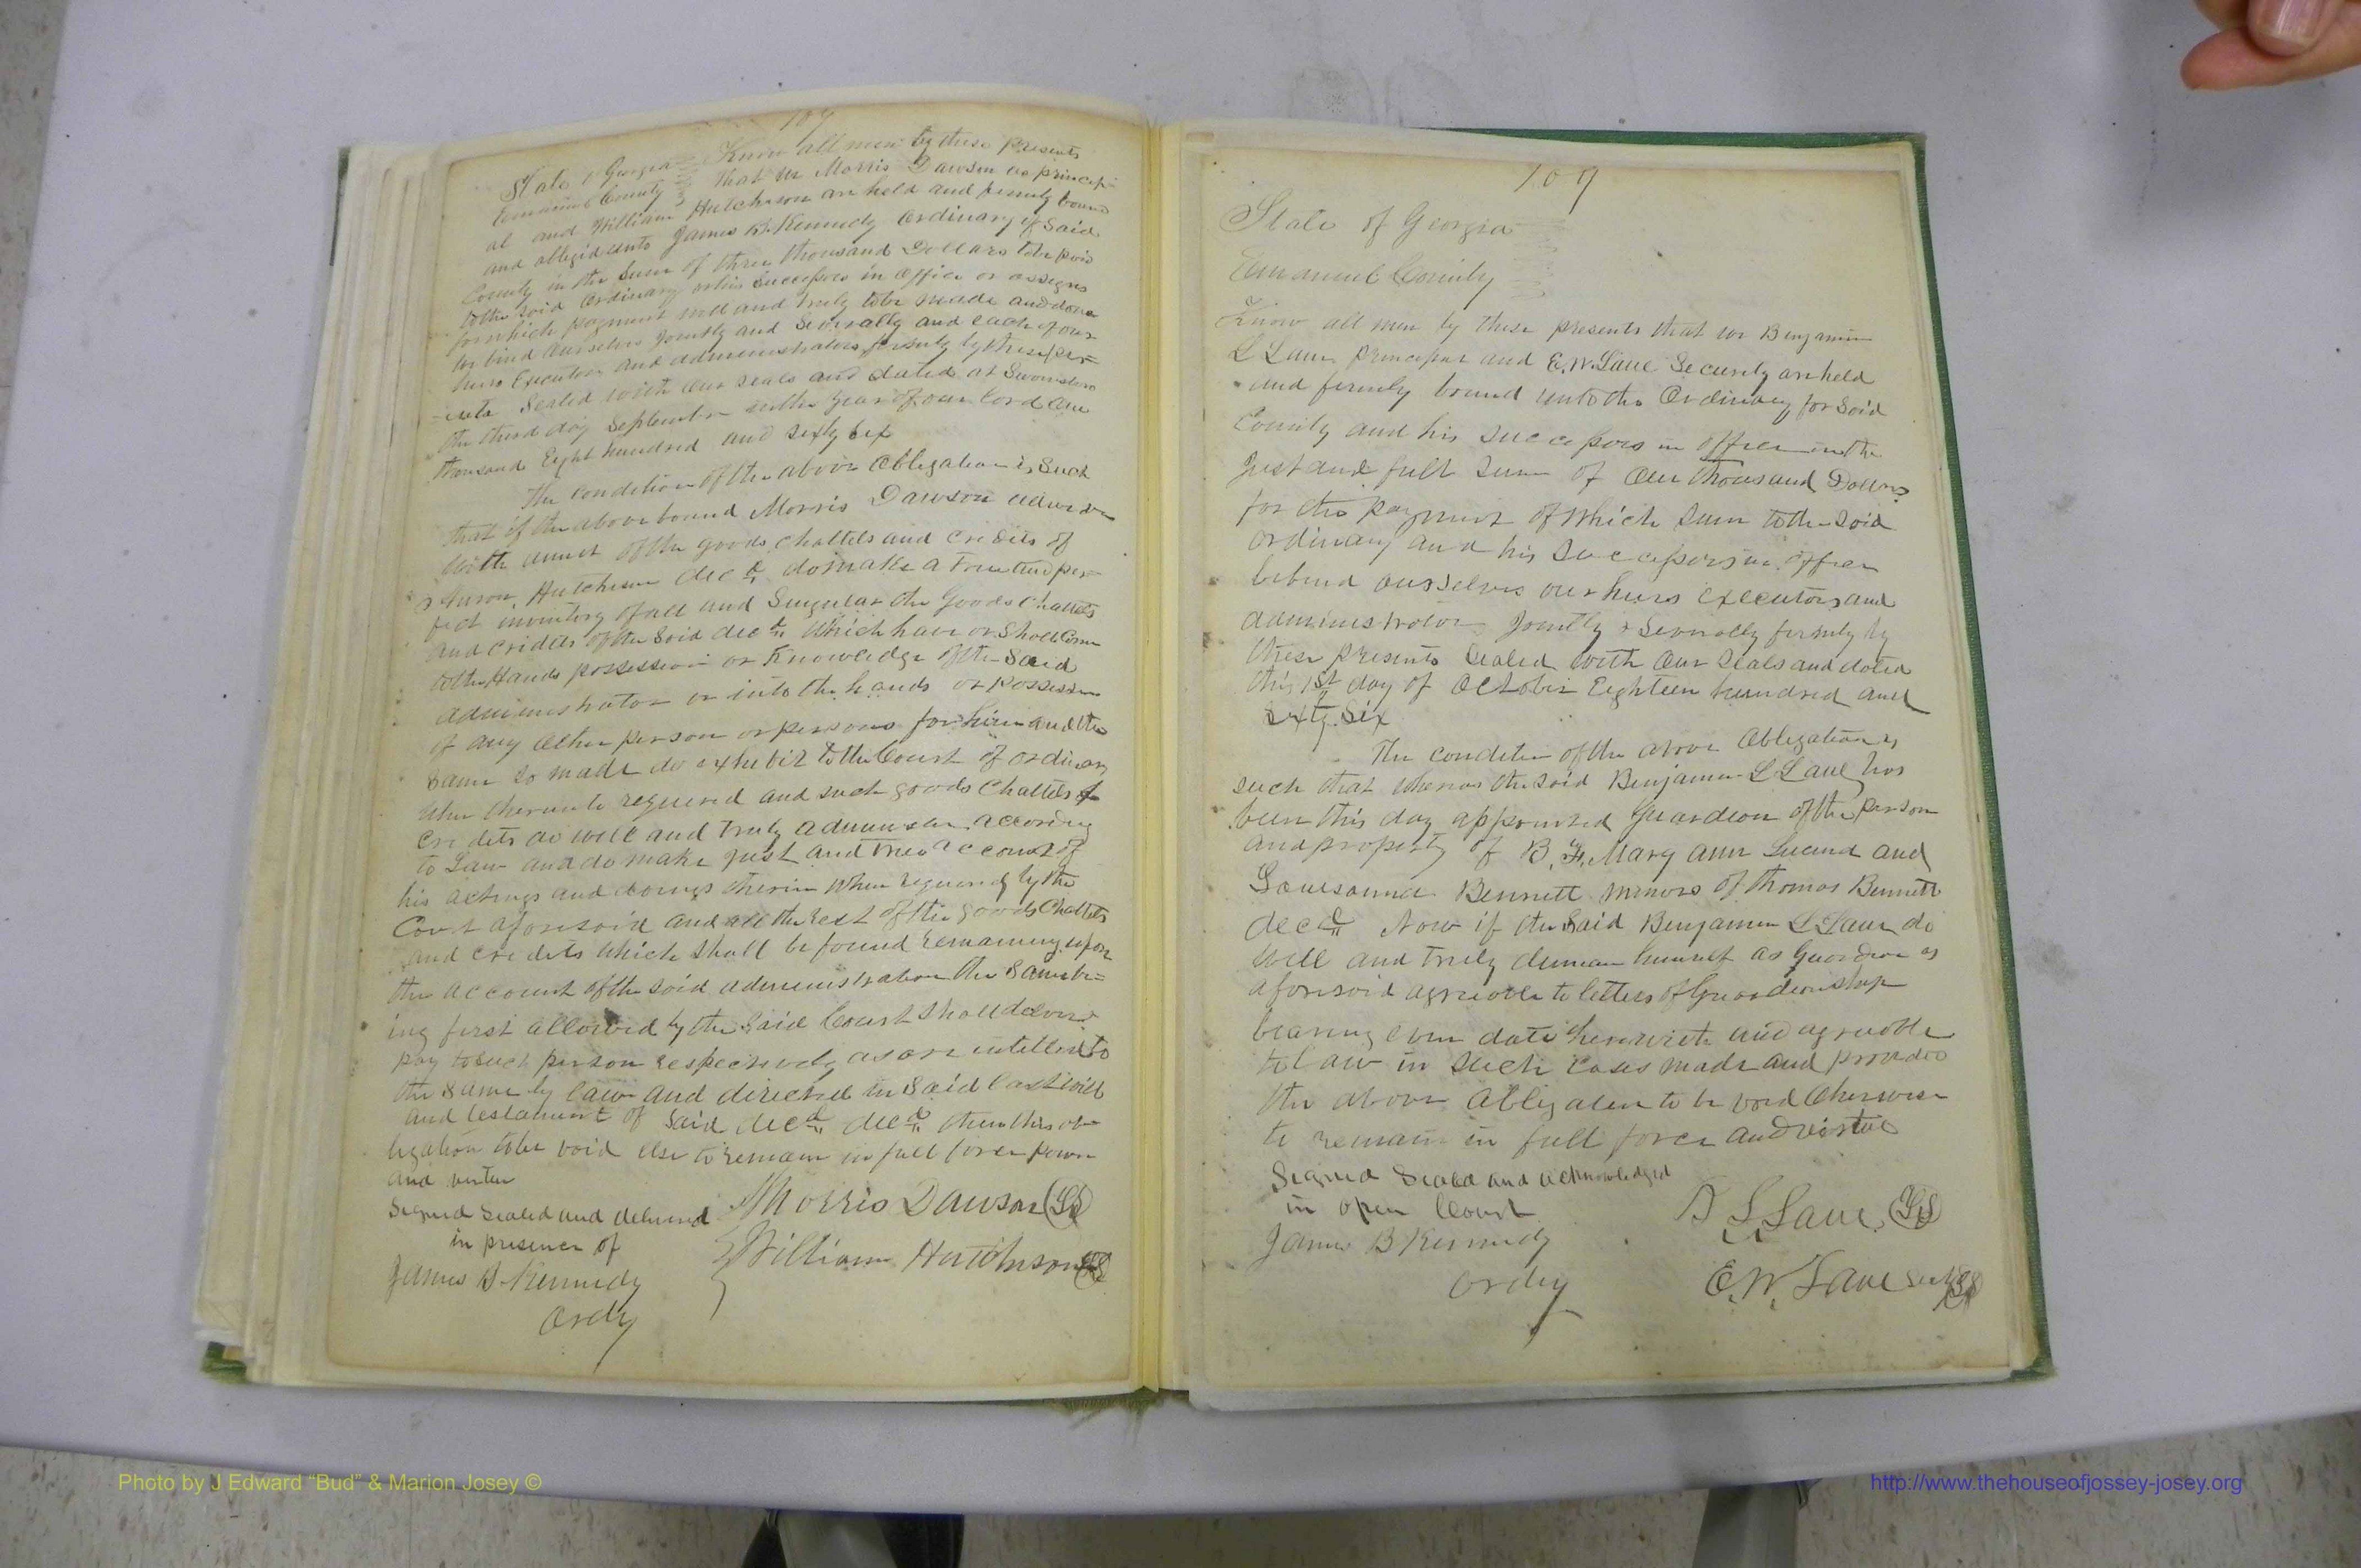 109
State of Georgia Know all men by these presents
Emanuel County that we Morris Dawson as princip-
al and William Hutcheson are held and firmly bound
and obligid unto James B. Kennedy Ordinary of Said
County in the Sum of three thousand Dollars to be paid
to the said Ordinary or his Successors in office or assigns
for which payment well and truly to be made and done
we bind ourselves jointly and Severally and each of our
heirs Executors and administrators firmly by these pre-
sents Sealed with our seals and dated at Swainsboro
the third day September in the year of our lord one
thousand Eight hundred and sixty six
The condition of the above obligation is Such
that if the above bound Morris Dawson
with annex of the goods chattels and credits of
Hutcheson decd. do make a true and per-
fect inventory of all and Singular the Goods Chattels
and credits of the said decd. which have or shall come
to the Hands possession or Knowledge of the Said
administrator or into the hands or possession
of any other person or persons for him and the
same so made do exhibit to the Court of ordinary
when thereunto required and such goods Chattels &
credits do well and truly administer according
to Law and do make just and true account of
his actings and doings therein when required by the
Court aforesaid and all the rest of the goods Chattels
and credits which shall be found remaining upon
the account of the said administration the same be-
ing first allowed by the Said Court shall deliver
pay to such person respectively as are intitled to
the same by law and directed in Said last will
and testament of said decd. decd. then this ob-
ligation to be void else to remain in full force power
and virtue
Signed Sealed and delivered Morris Dawson (LS)
in presence of William Hutchinson (LS)
James B. Kennedy
Ordy
109
State of Georgia
Emanuel County
Know all men by these presents that we Benjamin
L Lane principal and E. W. Lane Security are held
and firmly bound unto the Ordinary for Said
County and his successors in office in the
just and full sum of One Thousand Dollars
for the payment of which sum to the said
ordinary and his successors in office
we bind ourselves our heirs executors and
administrators Jointly & Severally firmly by
these presents Sealed with our seals and dated
this 1st day of October Eighteen hundred and
Sixty. Six
The condition of the above Obligation is
such that whereas the said Benjamin L Lane has
been this day appointed guardian of the person
and property of B. F. Mary ann Lucind and
Louesanna Bennett minors of Thomas Bennett
decd. Now if the Said Benjamin L Lane do
well and truly demean himself as guardian as
aforesaid agreeable to letters of Guardianship
bearing even date herewith and agreeable
to law in such cases made and provided
the above obligation to be void Otherwise
to remain in full force and virtue
Signed Sealed and acknowledged
in open Court B L Lane (LS)
James B Kennedy
Ordy E. W. Lane (LS)
Photo by J Edward “Bud” & Marion Josey ©
http://www.thehouseofjossey-josey.org